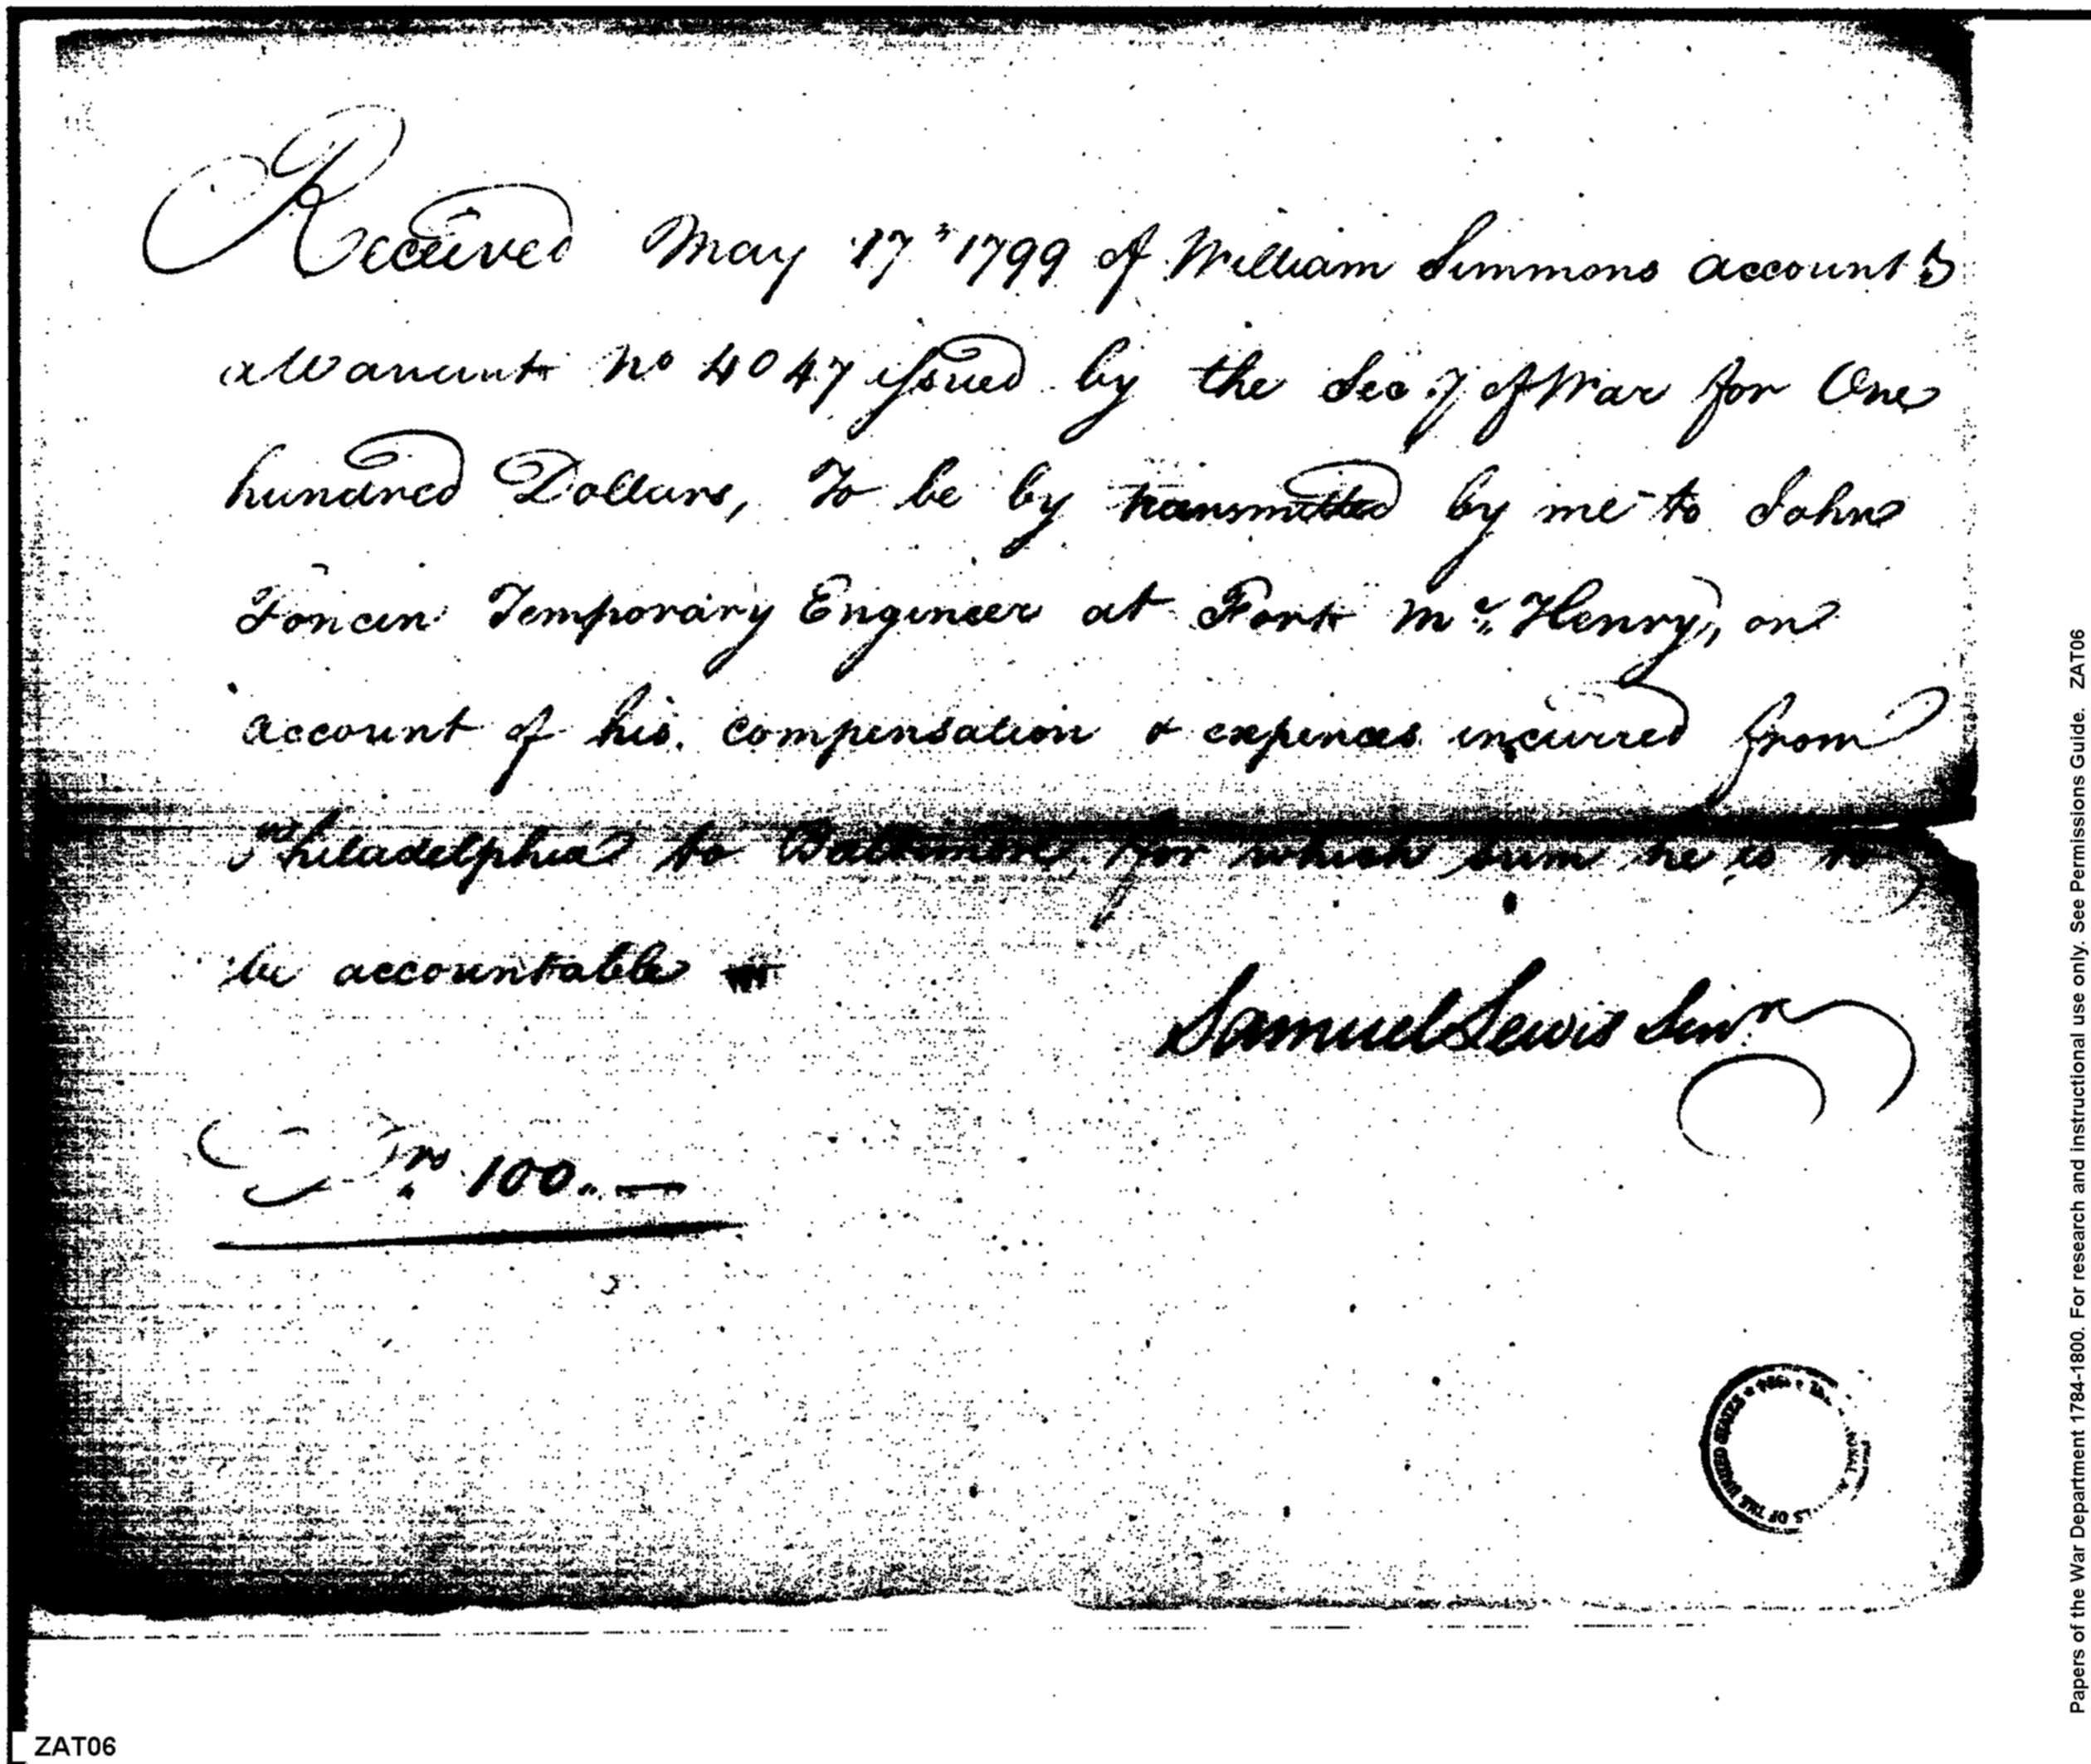 Received May 17th 1799 of William Simmons account t
a Warrant No 4047 issued by the Secy of War for One
hundred Dollars, To be by transmitted by me to John
Foncin Temporary Engineer at Fort Mc Henry, on
account of his compensation & expences incurred from
Philadelphia to Baltimore, for which sum he is to
be accountable
Samuel Lewis Senr
100.. —
OF THE UNITED STATES
ZAT06
Papers of the War Department 1784-1800. For research and instructional use only. See Permissions Guide. ZAT06